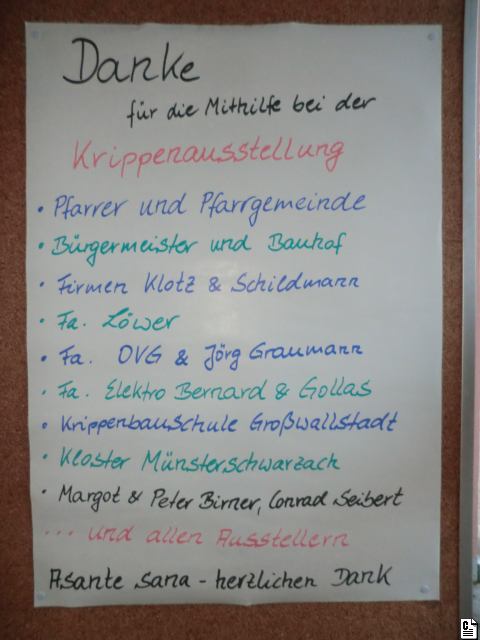 Danke
für die Mithilfe bei der
Krippenausstellung
• Pfarrer und Pfarrgemeinde
• Bürgermeister und Bauhof
• Firmen Klotz & Schildmann
• Fa. Löwer
• Fa. OVG & Jörg Graumann
• Fa. Elektro Bernard & Gollas
• Krippenbauschule Großwallstadt
• Kloster Münsterschwarzach
• Margot & Peter Birner, Conrad Seibert
... und allen Ausstellern
Asante sana - herzlichen Dank